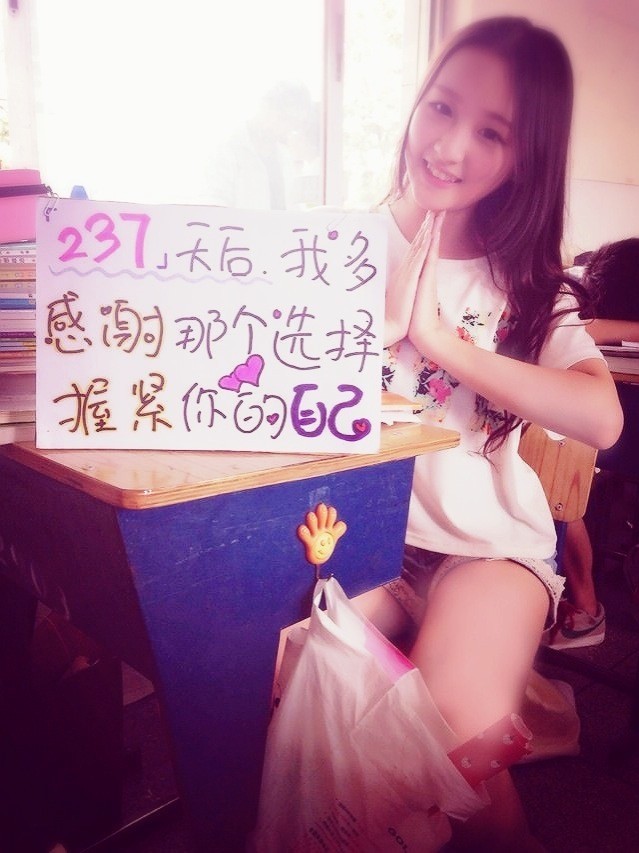 237天后.我多
感谢那个选择
握紧你的自己